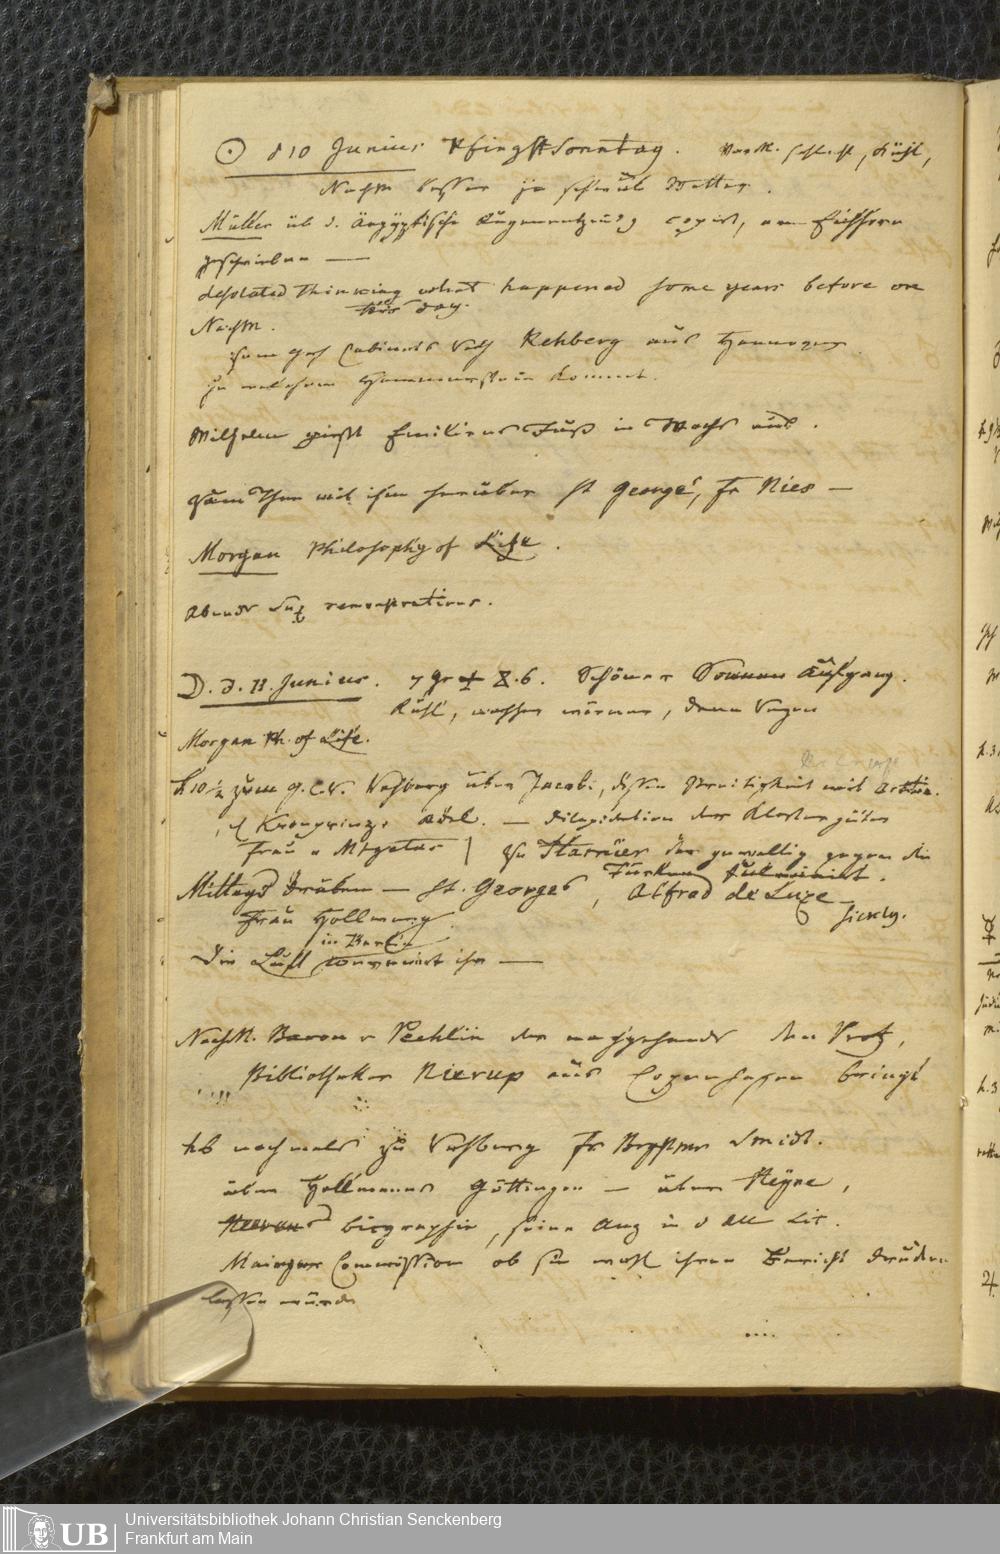 ☉ d 10 Junius Pfingstsonntag. Vorm. schlecht, kühl,
Nachm besser ja schwül Wetter.
Müller üb d. Aegyptische Augenentzündg copirt, an Eichhorn
geschrieben —
desolated thinking what happened some years before on
this day.
Nachm.
zum geh Cabinets Rath Rehberg aus Hannover
zu welchem Hammerstein kommt.
Wilhelm gießt Emiliens Fuß in Wachs aus.
zum Thee mit ihm herüber St George, Fr Nies —
Morgan Philosophy of Life.
Abends remonstrations.
D. d. 11. Junius. 7 gr + 8.6. Schöner Sonnen Aufgang.
Kühl, nachher wärmer, dann Regen
Morgan Ph. of Life.
h 10 ½ zum G.C.R. Rehberg über Jacobi, dessen Streitigkeit mit
Kronprinz Adel. — Dilapidation der Klostergüter
Frau v | zu der gewaltig gegen die
Türken fulminirt.
Mittags drüben — St. Georges, Alfred de Luxe
sickly.
Frau Hollmann
in Berlin
die Luft ihr —
Nachm. Baron v Pechlin der nachgehends den
Bibliothekar Nierup aus Copenhagen bringt
h 6 nochmals zu Rehberg Fr Smidt.
über Hollmanns Göttingen — über Heyne,
Heerens biographie, seine Anz in d All Lit.
Mainzer Commission ob sie wohl ihren Bericht drucken
lassen würde
Universitätsbibliothek Johann Christian Senckenberg
Frankfurt am Main
UB